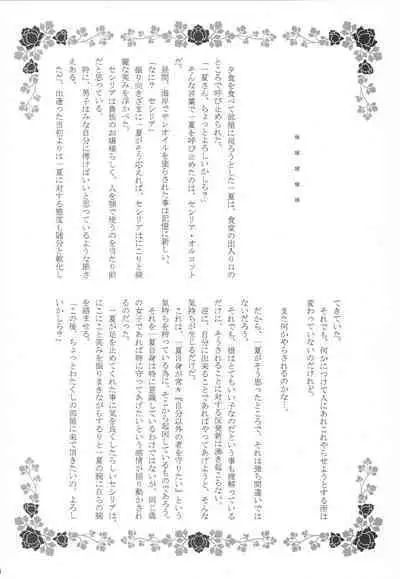 ＊＊＊＊＊
夕食を食べて部屋に戻ろうとした一夏は、食堂の出入り口の
ところで呼び止められた。
「一夏さん、ちょっとよろしいかしら？」
そんな言葉で一夏を呼び止めたのは、セシリア・オルコット
だ。
昼間、海岸でサンオイルを塗らされた事は記憶に新しい。
「なに？　セシリア」
振り向きざまに一夏がそう応えれば、セシリアはにこりと綺
麗な笑みを浮かべた。
セシリアは貴族のお嬢様らしく、人を顎で使うのを当たり前
だと思っている。
特に、男子はみな自分に傅けばいいと思っているような節さ
えある。
ただ、出逢った当初よりは一夏に対する態度も随分と軟化し
てきていた。
それでも、何かにつけて人にあれこれやらせようとする所は
変わっていないのだけれど。
また何かやらされるのかな……
だから、一夏がそう思ったところで、それは強ち間違いでは
ないだろう。
それでも、彼はとてもいい子なのだという事も理解っている
だけに、そうされることに対する反発は湧き起こらない。
逆に、自分に出来ることであればやってあげようと、そんな
気持ちが生じるだけだ。
これは、一夏自身が常々『自分以外の者を守りたい』という
気持ちを持っている為に、そこから起因しているものであろう。
それを一夏自身は特に意識しているわけではないが、同じ歳
の女子であれば特に守ってあげたいという感情が揺り動かされ
るのだった。
一夏が足を止めてくれた事に気を良くしたらしいセシリアは、
にこにこと笑みを振りまきながらするりと一夏の腕に自らの腕
を絡ませる。
「この後、ちょっとわたくしの部屋に来て頂きたいの。よろし
いかしら？」